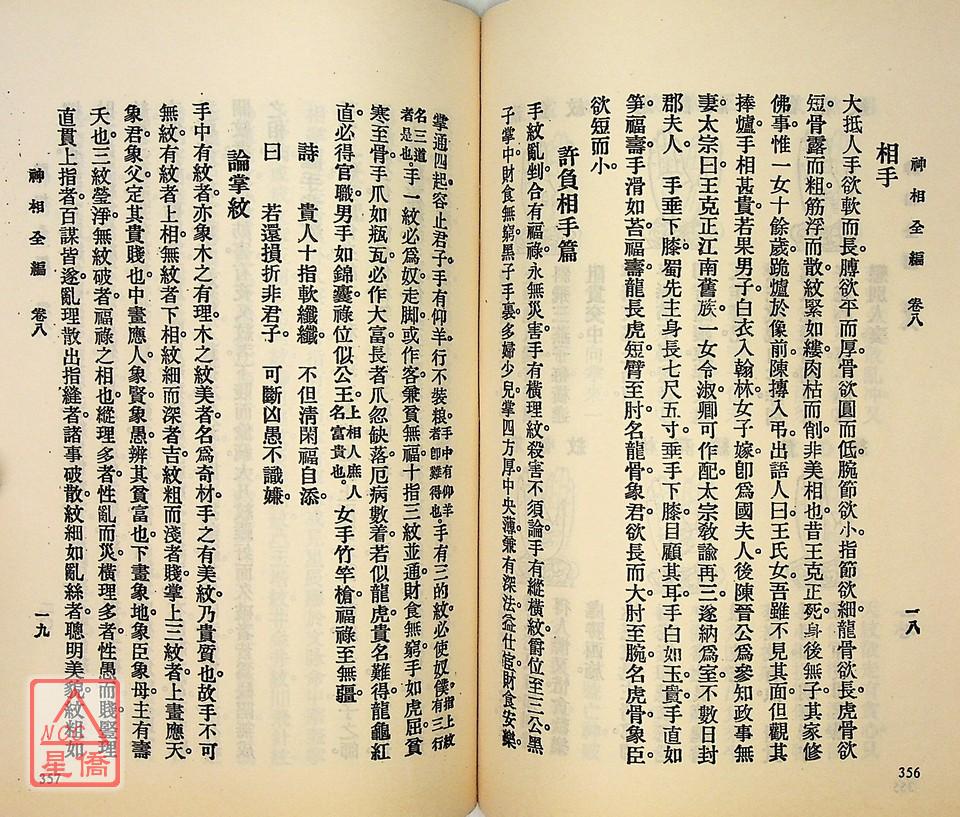 神相全編　卷八　一八
相手
大抵人手欲軟而長。膊欲平而厚。骨欲圓而低。腕節欲小。指節欲細。龍骨欲長。虎骨欲
短。骨露而粗。筋浮而散。紋緊如縷。肉枯而削。非美相也。昔王克正死。身後無子。其家修
佛事。惟一女十餘歲。跪爐於像前。陳摶入弔。出語人曰。王氏女吾雖不見其面。但觀其
捧爐手相甚貴。若果男子。白衣入翰林。女子嫁卽爲國夫人。後陳晉公爲參知政事。無
妻。太宗曰。王克正江南舊族。一女令淑。卿可作配。太宗敎諭再三。遂納爲室。不數日封
郡夫人　手垂下膝。蜀先主身長七尺五寸。垂手下膝。目顧其耳。手白如玉貴。手直如
笋福壽。手滑如苔福壽。龍長虎短。臂至肘名龍骨。象君欲長而大。肘至腕名虎骨。象臣
欲短而小。
許負相手篇
手紋亂剉。合有福祿。永無災害。手有橫理紋。殺害不須論。手有縱橫紋。爵位至三公。黑
子掌中。財食無窮。黑子手裏。多婦少兒。掌四方厚。中央薄。兼有深法。益仕宦。財食安樂。
356
掌通四起。容止君子。手有仰羊。行不裝粮。手中有仰羊者卽難得也。手有三的紋。必使奴僕。指上紋有三行
名三道者是也。手一紋必爲奴走脚。或作客兼貧無福。十指三紋並通。財食無窮。手如虎屈。貧
寒至骨。手爪如瓶瓦。必作大富長者。爪忽缺落。厄病數着。若似龍虎。貴名難得。龍龜紅
直。必得官職。男手如錦囊。祿位似公王。上相人庶人名富貴也。女手竹竿槍。福祿至無疆。
詩　貴人十指軟纖纖。　不但清閑福自添。
曰　若還損折非君子　可斷凶愚不識嫌
論掌紋
手中有紋者。亦象木之有理。木之紋美者。名爲奇材。手之有美紋。乃貴質也。故手不可
無紋。有紋者上相。無紋者下相。紋細而深者吉。紋粗而淺者賤。掌上三紋者。上畫應天。
象君象父。定其貴賤也。中畫應人。象賢象愚。辨其貧富也。下畫象地。象臣象母。主有壽
夭也。三紋瑩淨無紋破者。福祿之相也。縱理多者。性亂而災。橫理多者。性愚而賤。竪理
直貫上指者。百謀皆遂。亂理散出指縫者。諸事破散。紋細如亂絲者。聰明美貌。紋粗如
神相全編　卷八　一九
357
NCC
星僑